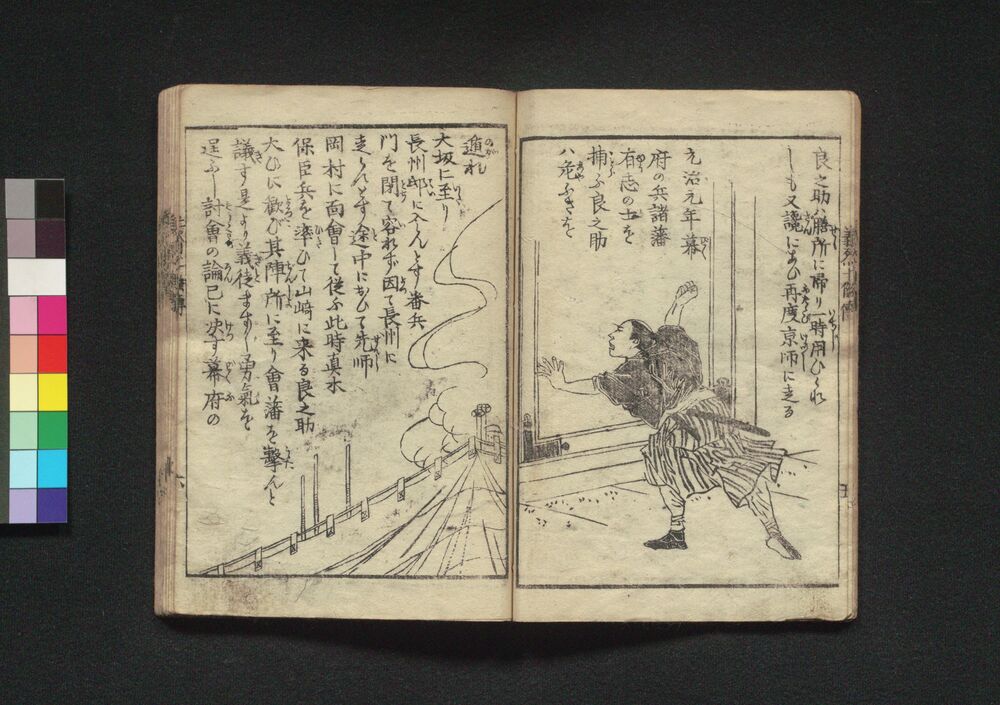 良之助ハ膳所に帰り一時用ひられ
しも又讒にあひ再度京師に走る
元治元年幕
府の兵諸藩
有志の士を
捕ふ良之助
ハ危ふきを
遁れ
大坂に至り
長州邸に入んとす番兵
門を閉て容れず因て長州に
走らんとす途中におひて先師
岡村に面會して従ふ此時真木
保臣兵を準ひて山﨑に来る良之助
大ひに歓び其陣所に至り會藩を撃んと
議す是より義徒ます〳〵勇氣を
逞ふし討會の論已に决す幕府の